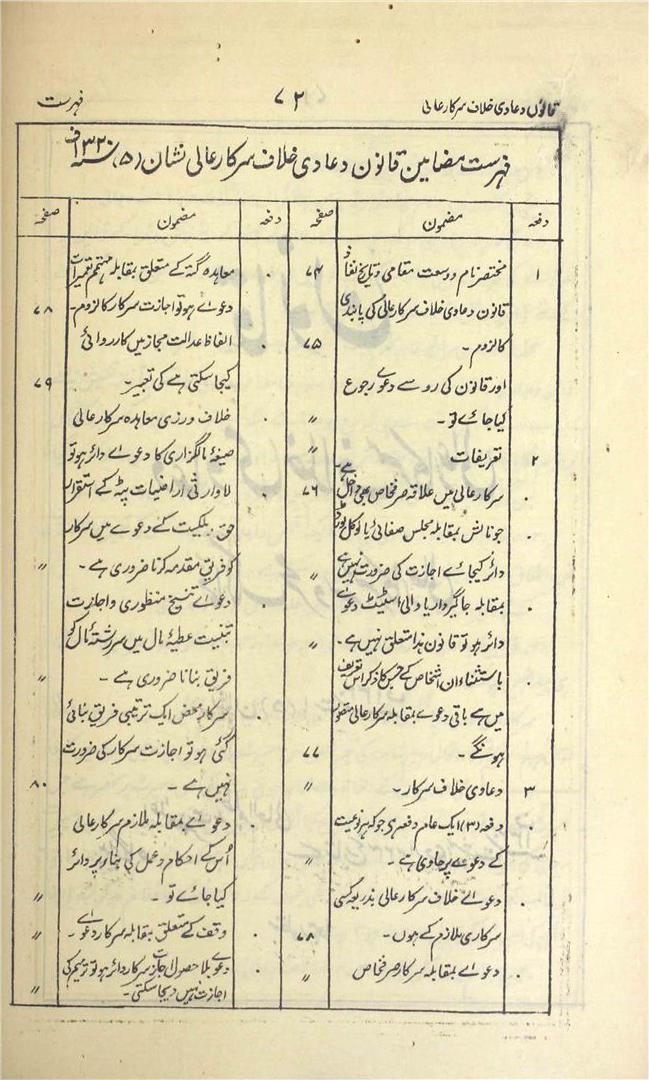 قانون دعاوی خلاف سرکار عالی
۷۲
فہرست
فہرست مضامین قانون دعاوی خلاف سرکار عالی نشان (۵) سنہ ۱۳۲۰ف
دفعہ مضمون صفحہ
۱ مختصر نام و وسعت مقامی و تاریخ نفاذ ۷۴
قانون دعاوی خلاف سرکار عالی کی پابندی
کا لزوم ۔ ۷۵
اور قانون کی رو سے دعوے رجوع
کیا جائے تو ۔ "
۲ تعریفات "
۰ سرکار عالی میں علاقہ صرفخاص بھی داخل ہے ۔ ۷۶
۰ جو نالش بمقابلہ مجلس صفائی یا لوکل بورڈ
دائر کیجائے اجازت کی ضرورت نہیں ہے "
۰ بمقابلہ جاگیردار یا والی اسٹیٹ دعوے
دائر ہو تو قانون ہذا متعلق نہیں ہے ۔ "
۰ باستثناء ان اشخاص کے جس کا ذکر اس تعریف
میں ہے باقی دعوے بمقابلہ سرکار عالی متصور
ہونگے ۔ ۷۷
۳ دعاوی خلاف سرکار ۔ "
۰ دفعہ (۳) ایک عام دفعہ ہی جو کہ ہر نوعیت
کے دعوے پر حاوی ہے ۔ "
۰ دعوے خلاف سرکار عالی بذریعہ کسی
سرکاری ملازم کے ہوں ۔ ۷۸
۰ دعوے بمقابلہ سرکار صرفخاص "
دفعہ مضمون صفحہ
۰ معاہدہ گتہ کے متعلق بمقابلہ مہتمم تعمیرات
دعوے ہو تو اجازت سرکار کا لزوم ۔ ۷۸
۰ الفاظ عدالت مجاز میں کارروائی
کیجا سکتی ہے کی تعبیر ۔ ۷۹
۰ خلاف ورزی معاہدہ سرکار عالی
صیغۂ مالگزاری کا دعوے دائر ہو تو
۰ لاوارثی اراضیات پٹہ کے استقرار
حق ملکیت کے دعوے میں سرکار
کو فریق مقدمہ کرنا ضروری ہے ۔ "
۰ دعوے تنسیخ منظوری و اجازت
تبنیت عطیہ مال میں سررشتۂ مال کو
فریق بنانا ضروری ہے ۔ "
۰ سرکار محض ایک ترتیبی فریق بنائی
گئی ہو تو اجازت سرکار کی ضرورت
نہیں ہے ۔ ۸۰
۰ دعوے بمقابلہ ملازم سرکار عالی
اُس کے احکام و عمل کی بناء پر دائر
کیا جائے تو ۔ "
۰ وقف کے متعلق بمقابلہ سرکار دعوے ۔ "
۰ دعوے بلا حصول اجازت سرکار دائر ہو تو ترمیم کی
اجازت نہیں دیجا سکتی ۔ "